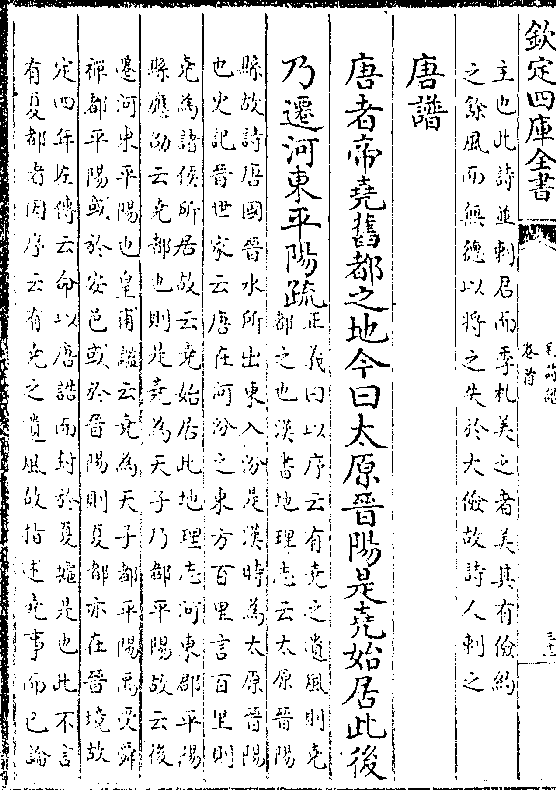 欽定四庫全書
毛詩譜
卷首
主也此詩並刺君而季札美之者美其有儉約
之餘風而無德以將之失於大儉故詩人刺之
唐譜
唐者帝堯舊都之地今曰太原晉陽是堯始居此後
乃遷河東平陽疏
正義曰以序云有堯之遺風則堯
都之也漢書地理志云太原晉陽
縣故詩唐國晉水所出東入汾是漢時為太原晉陽
也史記晉世家云唐在河汾之東方百里言百里則
堯為諸侯所居故云堯始居此地理志河東郡平陽
縣應劭云堯都也則是堯為天子乃都平陽故云後
遷河東平陽也皇甫謐云堯為天子都平陽禹受舜
禪都平陽或於安邑或於晉陽則夏都亦在晉境故
定四年左傳云命以唐誥而封於夏墟是也此不言
有夏都者因序云有堯之遺風故指述堯事而已論